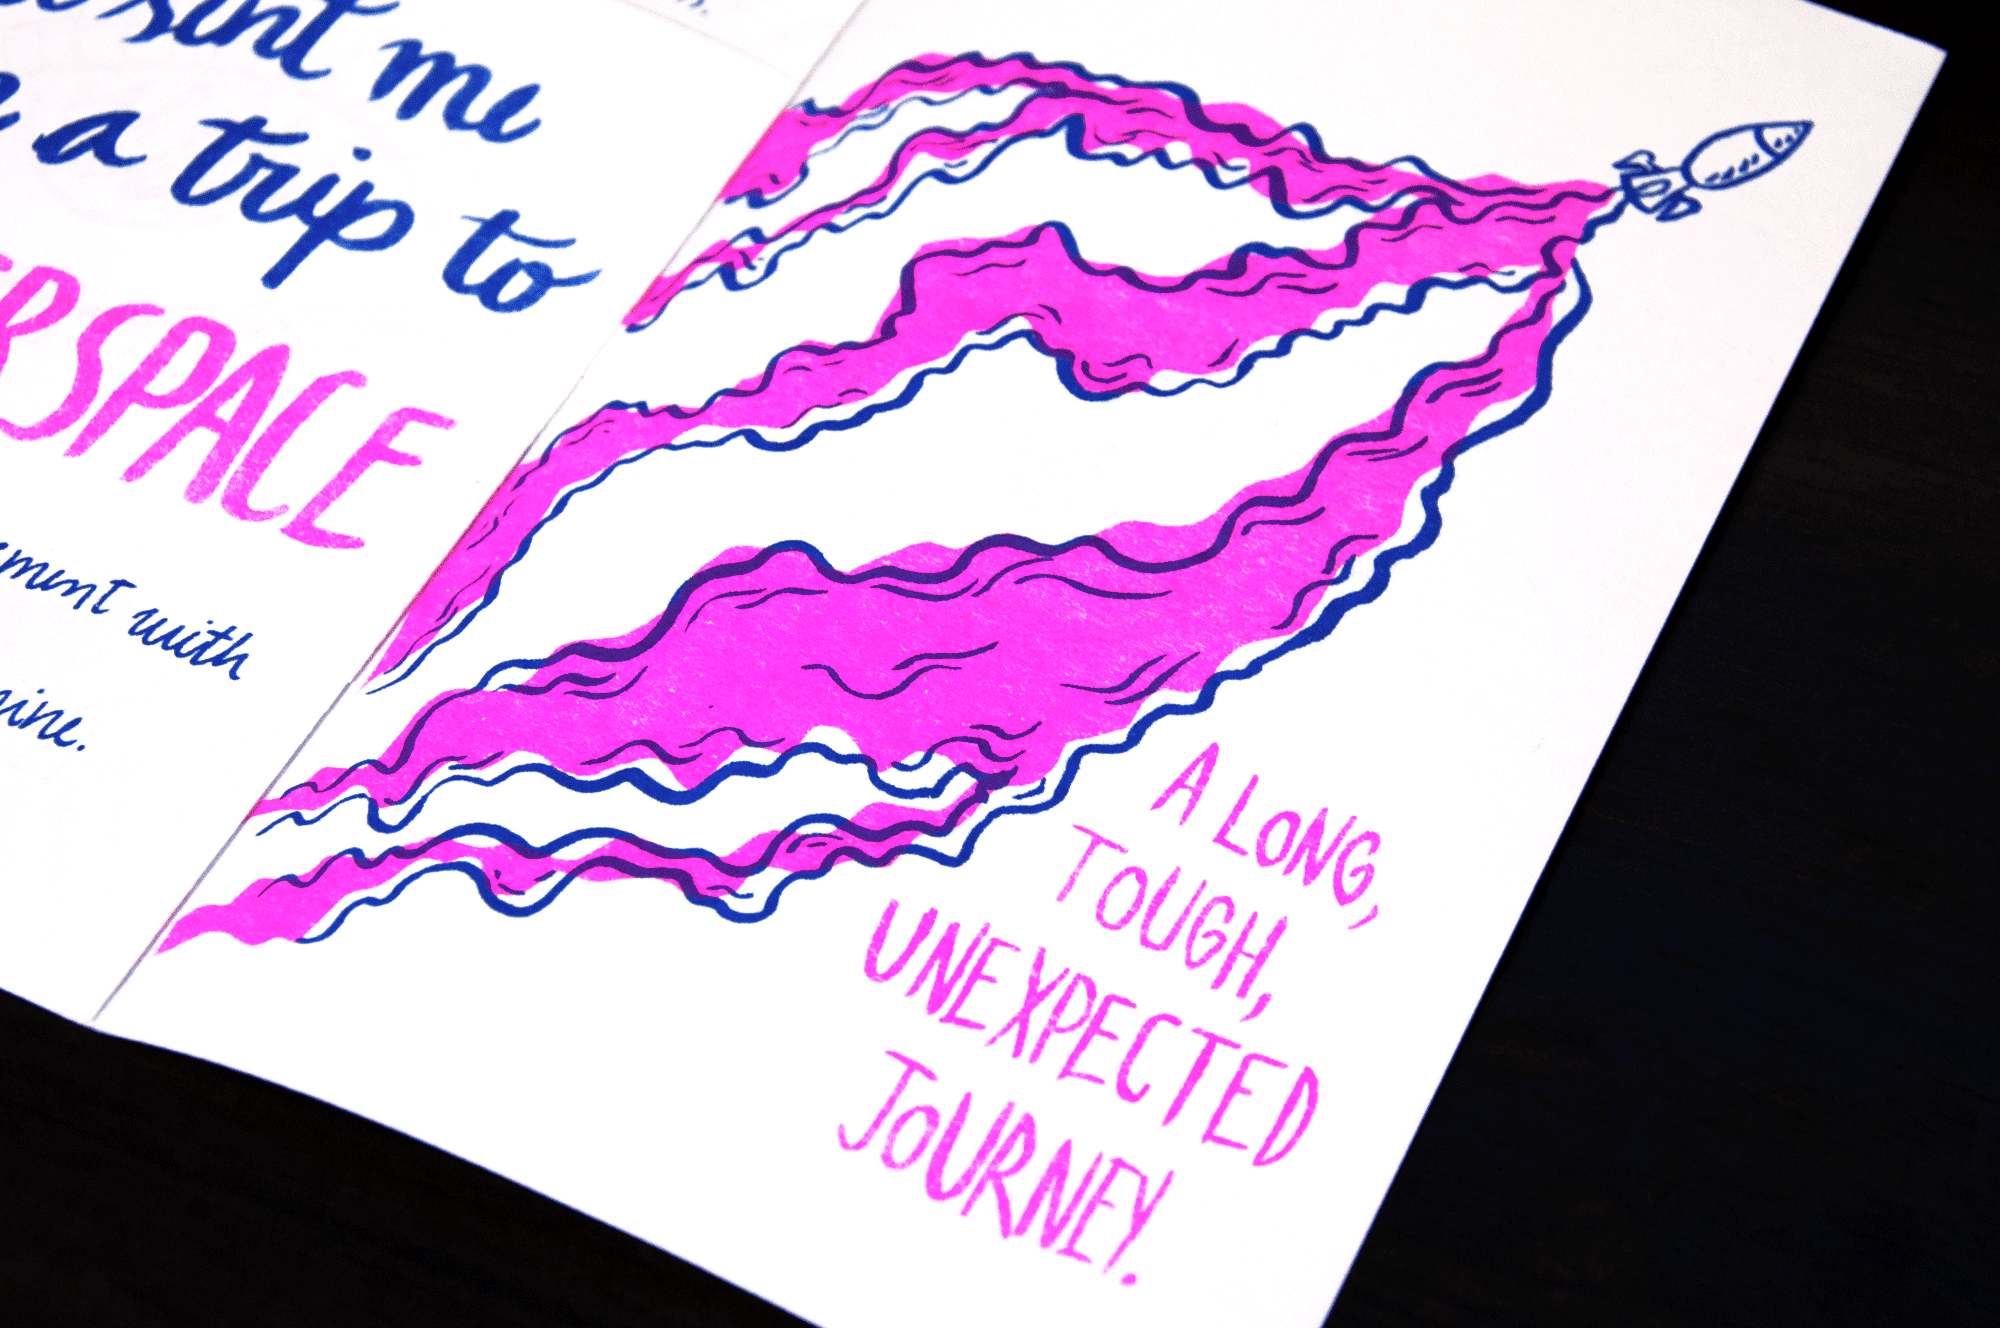 sent me
a trip to
SPACE
with
A LONG,
TOUGH,
UNEXPECTED
JOURNEY.